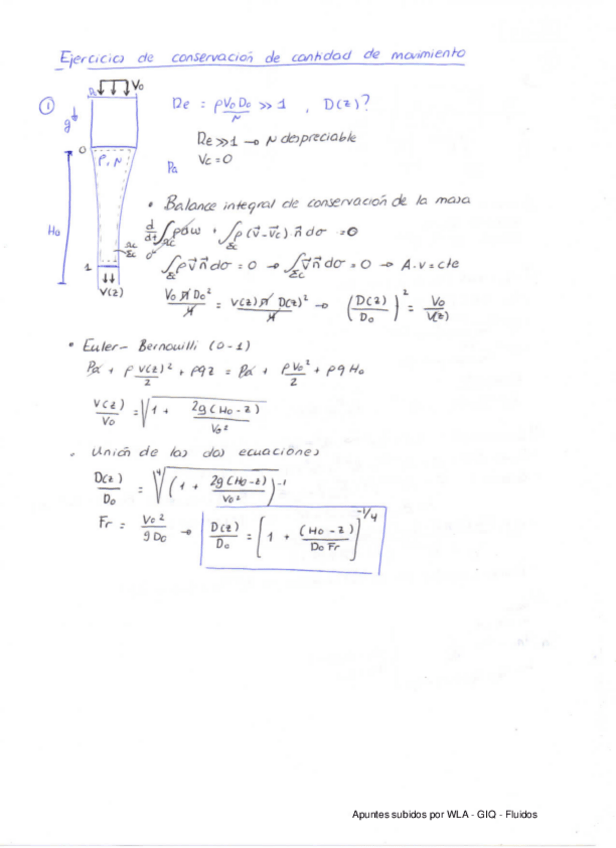 Ejercicios de conservación de cantidad de movimiento
Pa V₀
① g
Re = ρV₀D₀/μ >> 1 , D(z)?
Re >> 1 → μ despreciable
Vc = 0
Pa
0
ρ, μ
H₀
Ωc
Σc
1
V(z)
• Balance integral de conservación de la masa
d/dt ∫Ωc ρdω + ∫Σc ρ(v⃗ - v⃗c)·n⃗ dσ = 0
0
∫Σc ρv⃗n⃗dσ = 0 → ∫Σc v⃗n⃗dσ = 0 → A·v = cte
V₀ π D₀²/4 = V(z) π D(z)²/4 → (D(z)/D₀)² = V₀/V(z)
• Euler - Bernouilli (0-1)
Pa + ρ V(z)²/2 + ρgz = Pa + ρV₀²/2 + ρgH₀
V(z)/V₀ = √(1 + 2g(H₀-z)/V₀²)
• Unión de las dos ecuaciones
D(z)/D₀ = ⁴√(1 + 2g(H₀-z)/V₀²)⁻¹
Fr = V₀²/gD₀ → D(z)/D₀ = [1 + (H₀-z)/D₀Fr]^-1/4
Apuntes subidos por WLA - GIQ - Fluidos